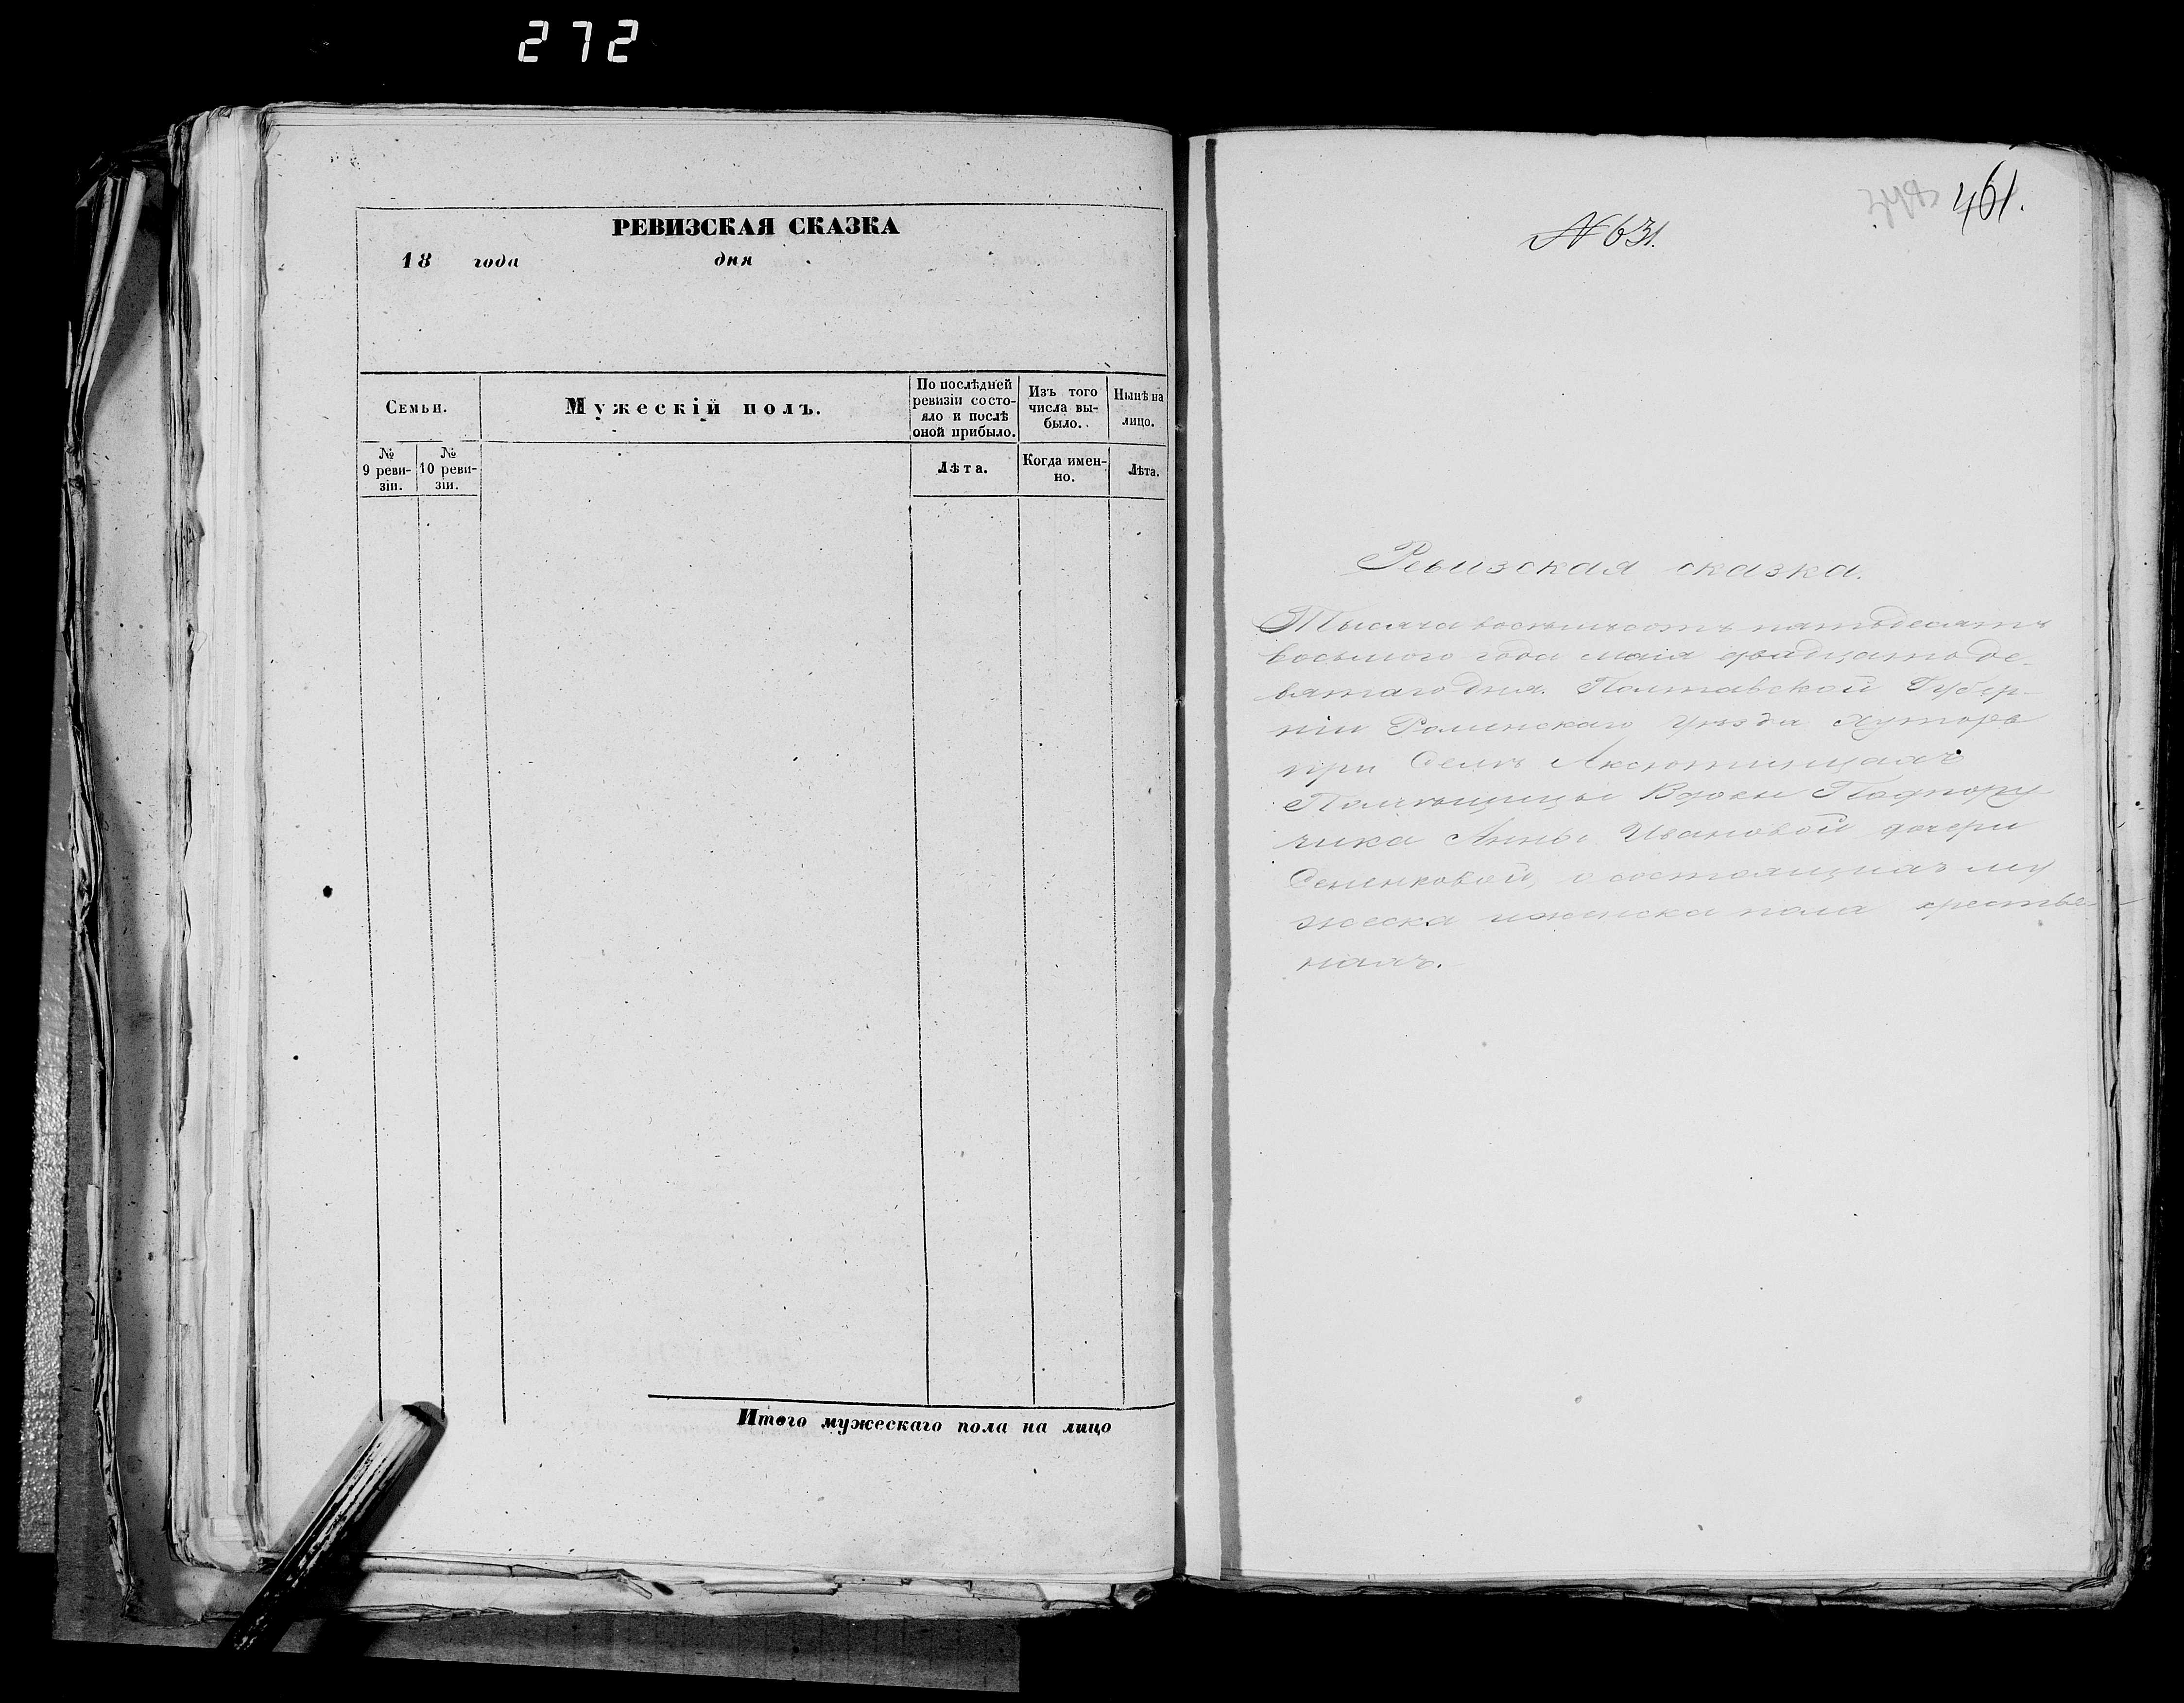 272
РЕВИЗСКАЯ СКАЗКА
18 года дня
Семьи.
Мужескій полъ.
По послѣдней ревизіи состо-
яло и послѣ
оной прибыло.
Изъ того
числа вы-
было.
Нынѣ на
лицо.
№
9 реви-
зіи.
№
10 реви-
зіи.
Лѣта.
Когда имен-
но.
Лѣта.
Итого мужескаго пола на лицо
461.
№ 631.
Ревизская сказка.
Тысяча восемьсотъ пятьдесятъ
восьмого года мая двадцать де-
вятаго дня. Полтавской Губер-
ніи Роменскаго уѣзда хутора
при Селѣ Аксютинцахъ
Помѣщицы Вдовы Подпору
чика Анны Ивановой дочери
о состоящихъ му
жеска и женска пола крестья-
нахъ.